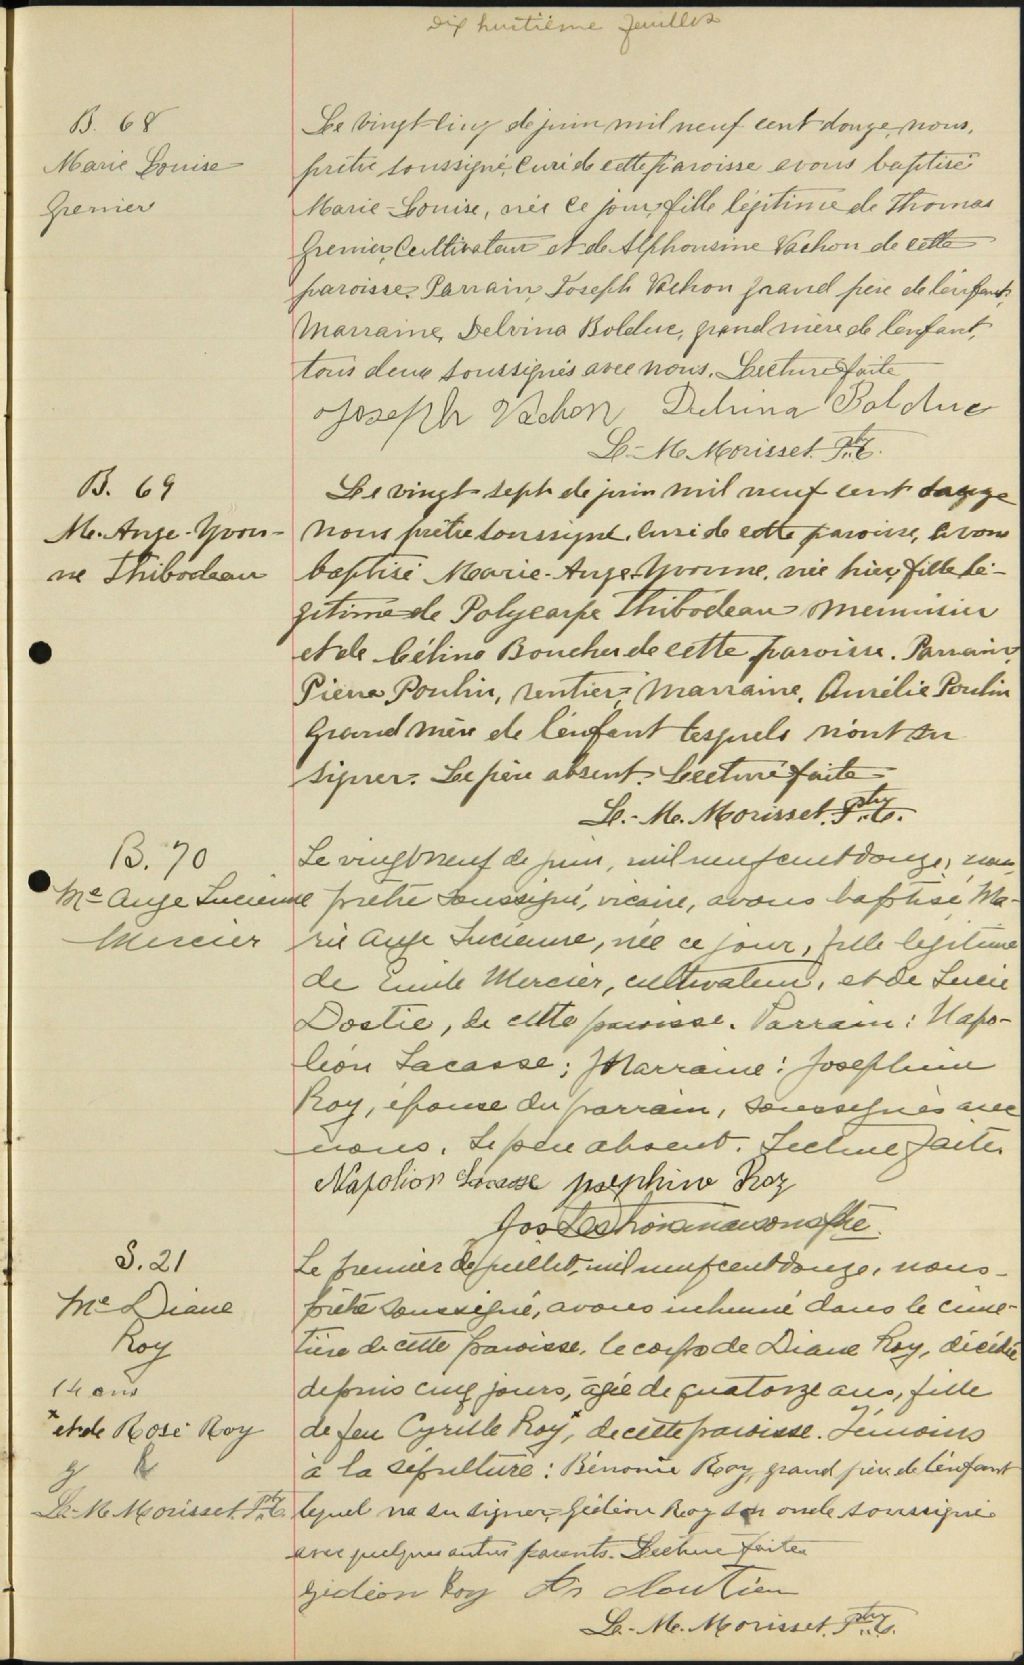 Dix huitième feuillet
B. 68
Marie Louise
Grenier
Le vingt-cinq de juin mil neuf cent douze, nous,
prêtre soussigné, curé de cette paroisse avons baptisé
Marie-Louise, née ce jour, fille légitime de Thomas
Grenier, Cultivateur et de Alphonsine Vachon de cette
paroisse. Parrain, Joseph Vachon grand père de l'enfant,
Marraine, Delvina Bolduc, grand mère de l'enfant,
tous deux soussignés avec nous. Lecture faite
Joseph Vachon Delvina Bolduc
L.-M. Morisset. Ptre.
B. 69
M. Ange-Yvon-
ne Thibodeau
Le vingt-sept de juin mil neuf cent douze
nous prêtre soussigné, curé de cette paroisse, avons
baptisé Marie-Ange-Yvonne, née hier, fille lé-
gitime de Polycarpe Thibodeau menuisier
et de Céline Boucher de cette paroisse. Parrain,
Pierre Poulin, rentier, Marraine, Aurélie Poulin
Grand mère de l'enfant lesquels n'ont su
signer. Le père absent. Lecture faite
L.-M. Morisset. Ptre.
B. 70
Me Ange Lucienne
Mercier
Le vingt neuf de juin, mil neuf cent douze, nous,
prêtre soussigné, vicaire, avons baptisé Ma-
rie Ange Lucienne, née ce jour, fille légitime
de Emile Mercier, cultivateur, et de Lucie
Dostie, de cette paroisse. Parrain: Napo-
léon Lacasse; Marraine: Josephine
Roy, épouse du parrain, soussignés avec
nous. Le père absent. Lecture faite
Napoléon Lacasse Josephine Roy
Jos Destroismaisons Ptre.
S. 21
Me Diane
Roy
14 ans
x et de Rose Roy
L.-M. Morisset. Ptre.
Le premier de juillet, mil neuf cent douze, nous
prêtre soussigné, avons inhumé dans le cime-
tière de cette paroisse, le corps de Diane Roy, décédée
depuis cinq jours, âgée de quatorze ans, fille
de feu Cyrille Roy x, de cette paroisse. Témoins
à la sépulture: Bénonie Roy, grand père de l'enfant
lequel n'a su signer, Gédéon Roy son oncle soussigné
avec quelques autres parents. Lecture faite
Gédéon Roy Cloutier
L.-M. Morisset. Ptre.